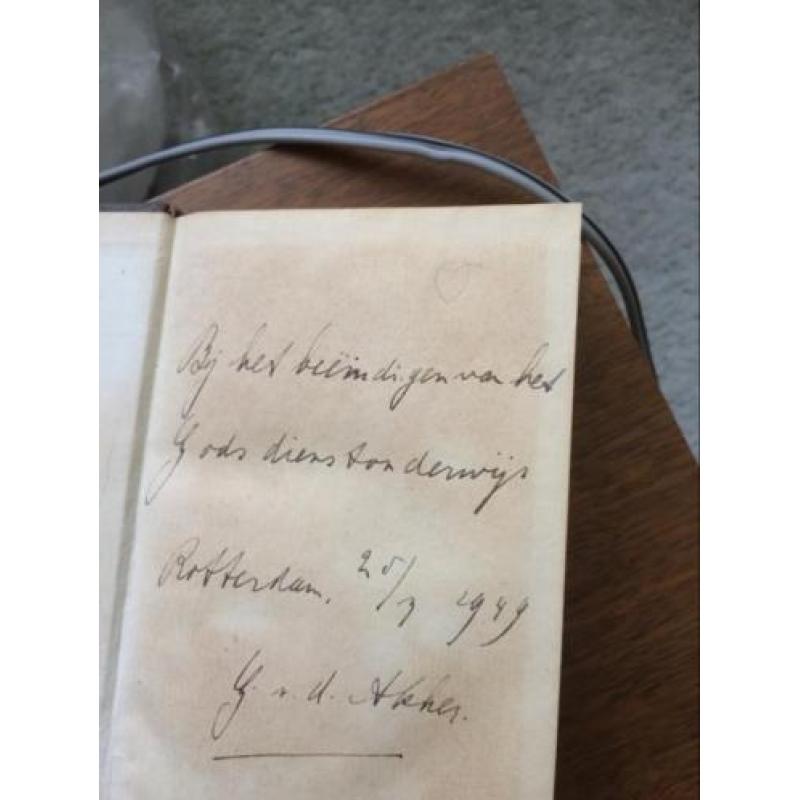 Bij het beëindigen van het
Godsdienstonderwijs
Rotterdam, 25/7 1949
G. v. d. Akker.